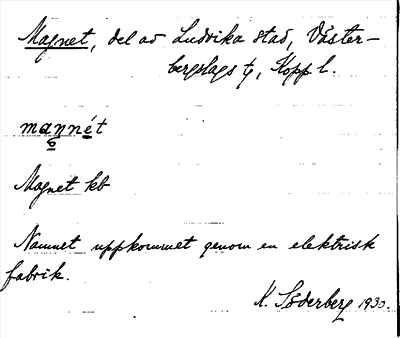 Magnet, del av Ludvika stad, Väster-
bergslags tg, Kopp l.
maŋnét
Magnet kb
Namnet uppkommet genom en elektrisk
fabrik.
K. Söderberg 1930.